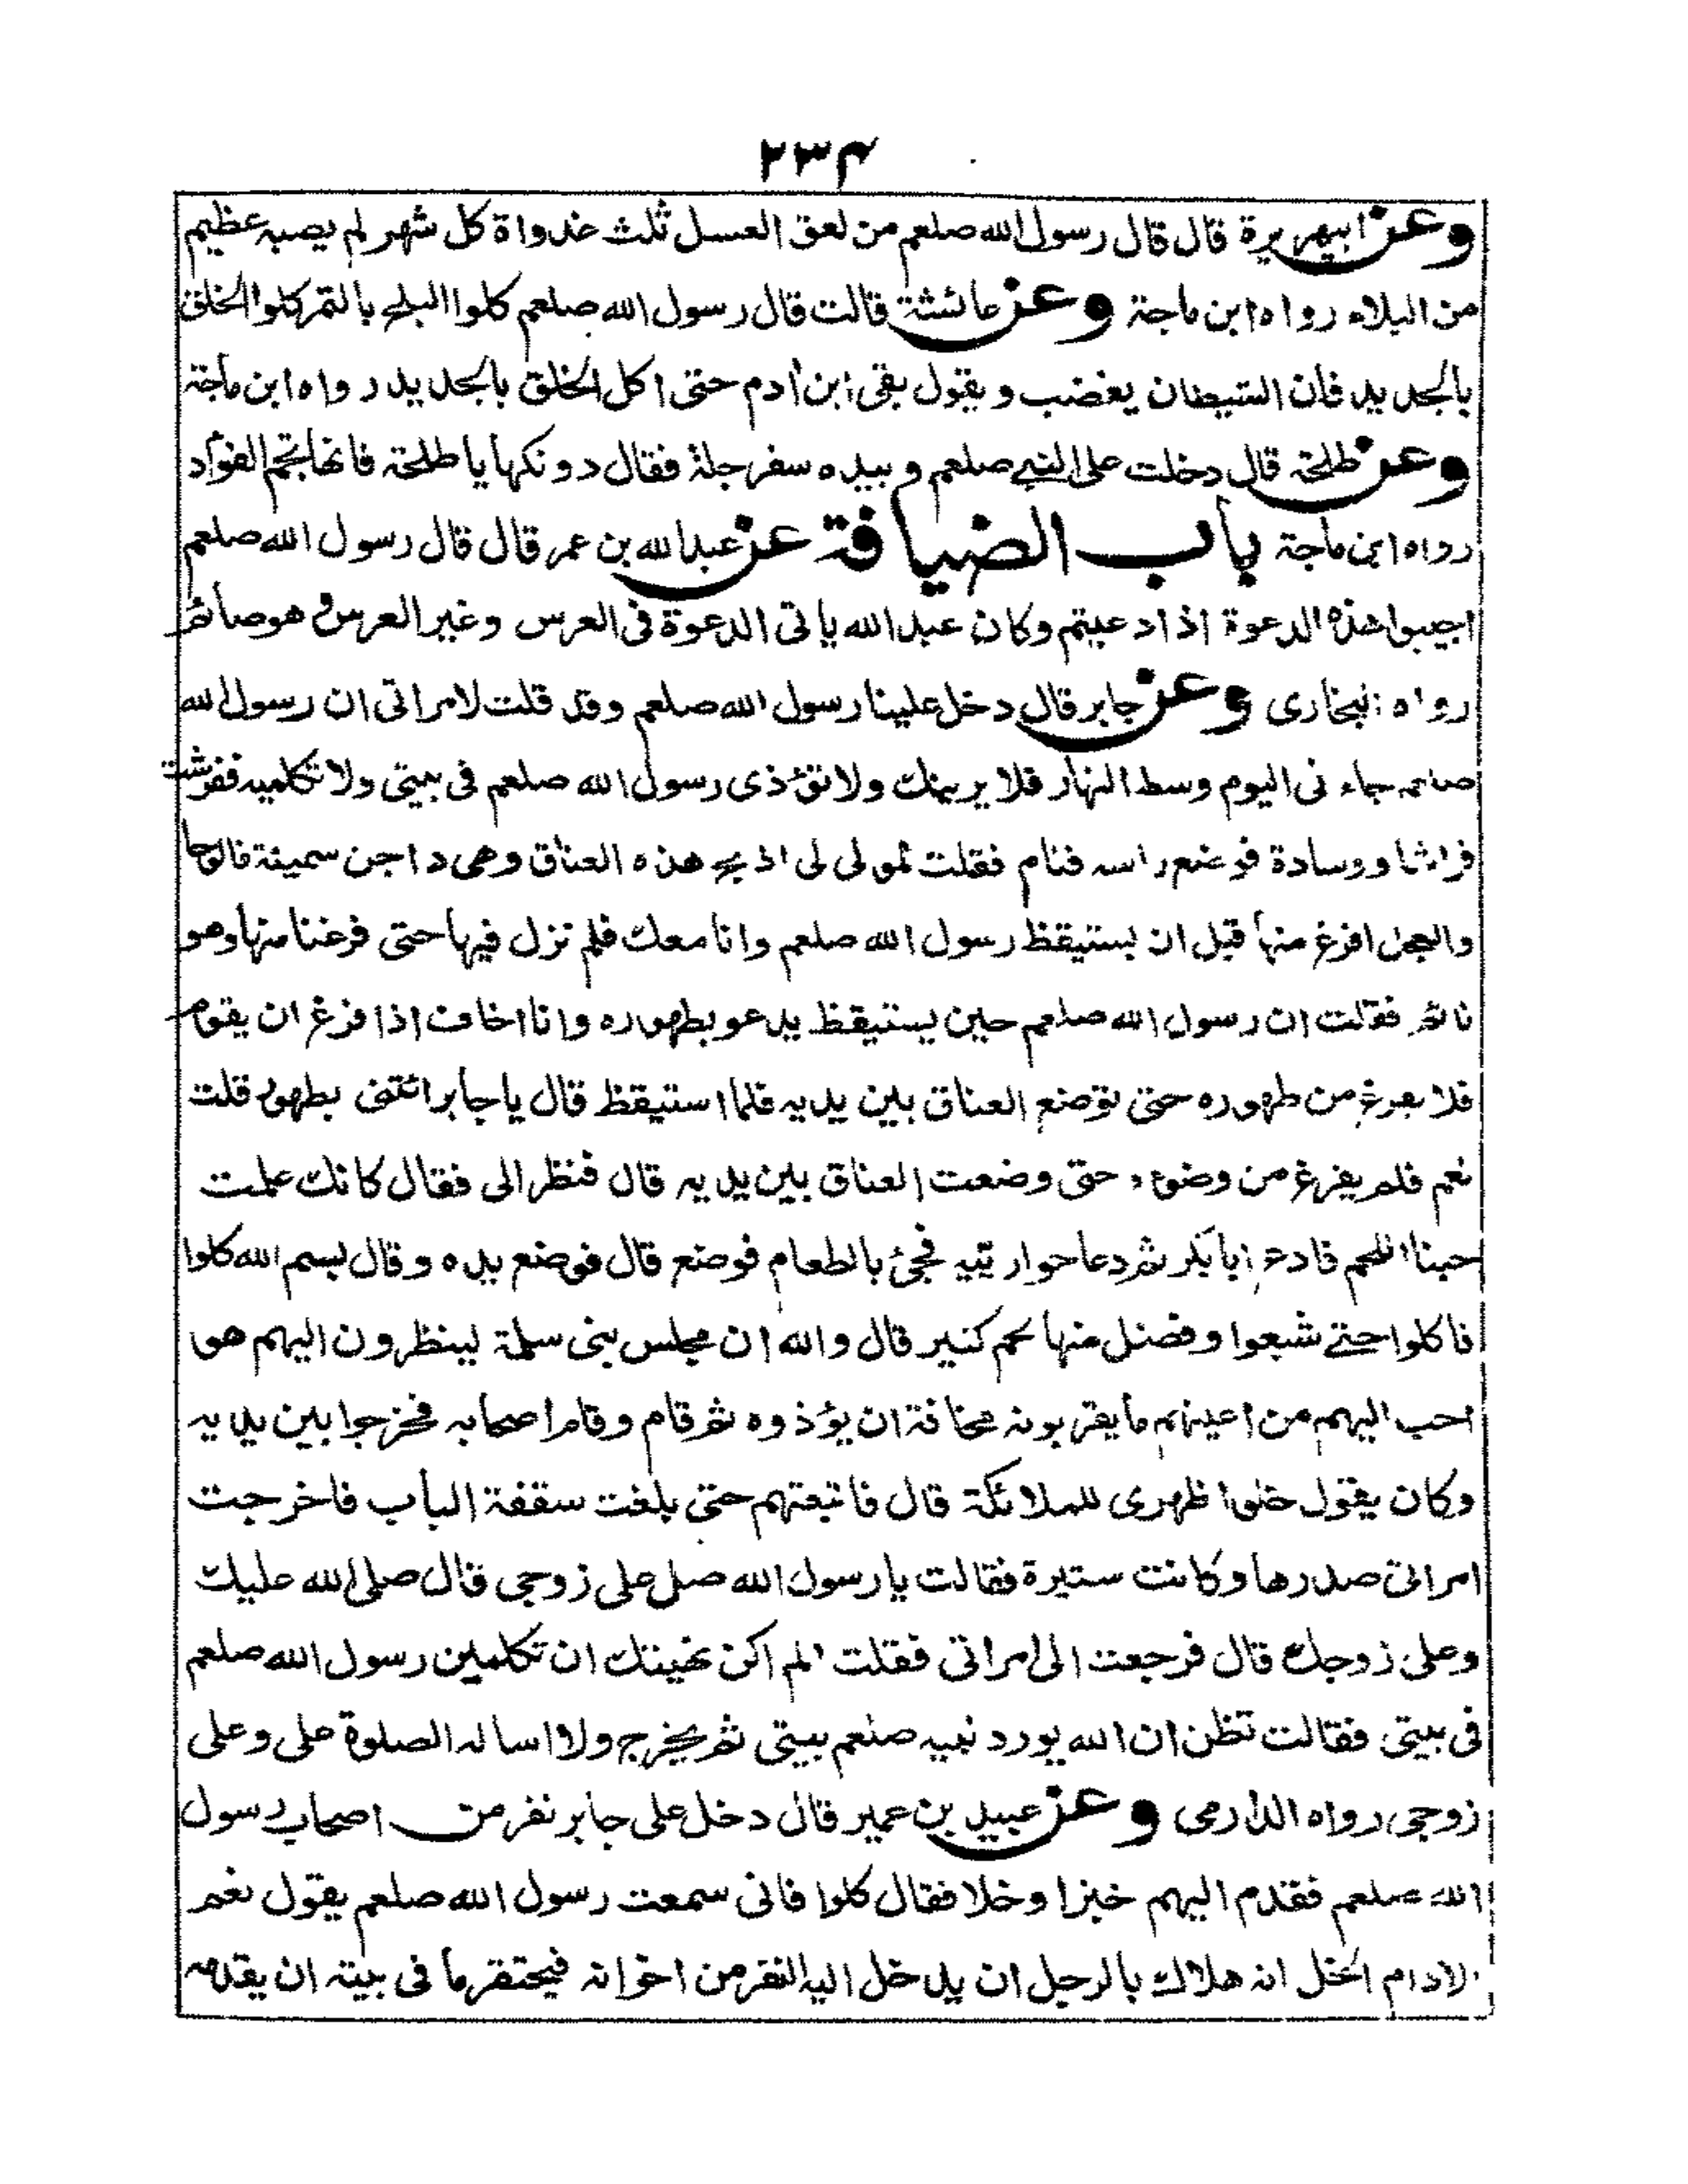 ۲۳۴
وعن ابیهریرة قال قال رسول الله صلعم من لعق العسل ثلث غدواة کل شهر لم یصبه عظیم
من البلاء رواه ابن ماجة وعن عائشة قالت قال رسول الله صلعم کلوا البلح بالتمر کلوا الخلق
بالجدید فان الشیطان یغضب و یقول بقی ابن أدم حتی اکل الخلق بالجدید رواه ابن ماجة
وعن طلحة قال دخلت علی النبی صلعم و بیده سفرجلة فقال دونکها یا طلحة فانها تجم الفؤاد
رواه ابن ماجة باب الضیافة عن عبد الله بن عمر قال قال رسول الله صلعم
اجیبوا هذه الدعوة اذا دعیتم وکان عبد الله یاتی الدعوة فی العرس وغیر العرس و هو صائم
رواه البخاری وعن جابر قال دخل علینا رسول الله صلعم وقد قلت لامراتی ان رسول الله
صلعم جاء نی الیوم وسط النهار فلا یرینك ولا تؤذی رسول الله صلعم فی بیتی ولا تکلمیه ففرشت
فراشا ووسادة فوضع راسه فنام فقلت لمولی لی اذبح هذه العناق وهی داجن سمینة فالوحا
والعجل افرغ منها قبل ان یستیقظ رسول الله صلعم وانا معك فلم نزل فیها حتی فرغنا منها وهو
نائم فقلت ان رسول الله صلعم حین یستیقظ یدعو بطهوره وانا اخاف اذا فرغ ان یقوم
فلا یفرغ من طهوره حتی توضع العناق بین یدیه فلما استیقظ قال یا جابر ائتنی بطهور قلت
نعم فلم یفرغ من وضوءه حتی وضعت العناق بین یدیه قال فنظر الی فقال کانك علمت
حبنا اللحم فادع ابا بکر ثم دعا حواریّیه فجئ بالطعام فوضع قال فوضع یده وقال بسم الله کلوا
فاکلوا حتی شبعوا وفضل منها لحم کثیر قال والله ان مجلس بنی سلمة لینظرون الیهم هو
احب الیهم من اعینهم ما یقربونه مخافة ان یؤذوه ثم قام وقام اصحابه فخرجوا بین یدیه
وکان یقول خلوا ظهری للملائکة قال فاتبعتهم حتی بلغت سقفة الباب فاخرجت
امراتی صدرها وکانت ستیرة فقالت یا رسول الله صل علی زوجی قال صلی الله علیك
وعلی زوجك قال فرجعت الی امراتی فقلت الم اکن نهیتك ان تکلمین رسول الله صلعم
فی بیتی فقالت تظن ان الله یورد نبیه صلعم بیتی ثم یخرج ولا اساله الصلوة علی وعلی
زوجی رواه الدارمی وعن عبید بن عمیر قال دخل علی جابر نفر من اصحاب رسول
الله صلعم فقدم الیهم خبزا وخلا فقال کلوا فانی سمعت رسول الله صلعم یقول نعم
الادام الخل انه هلاك بالرجل ان یدخل الیه النفر من اخوانه فیحتقر ما فی بیته ان یقدمه